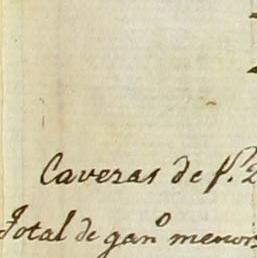 Caveras de f. 2
Total de gan.º menor